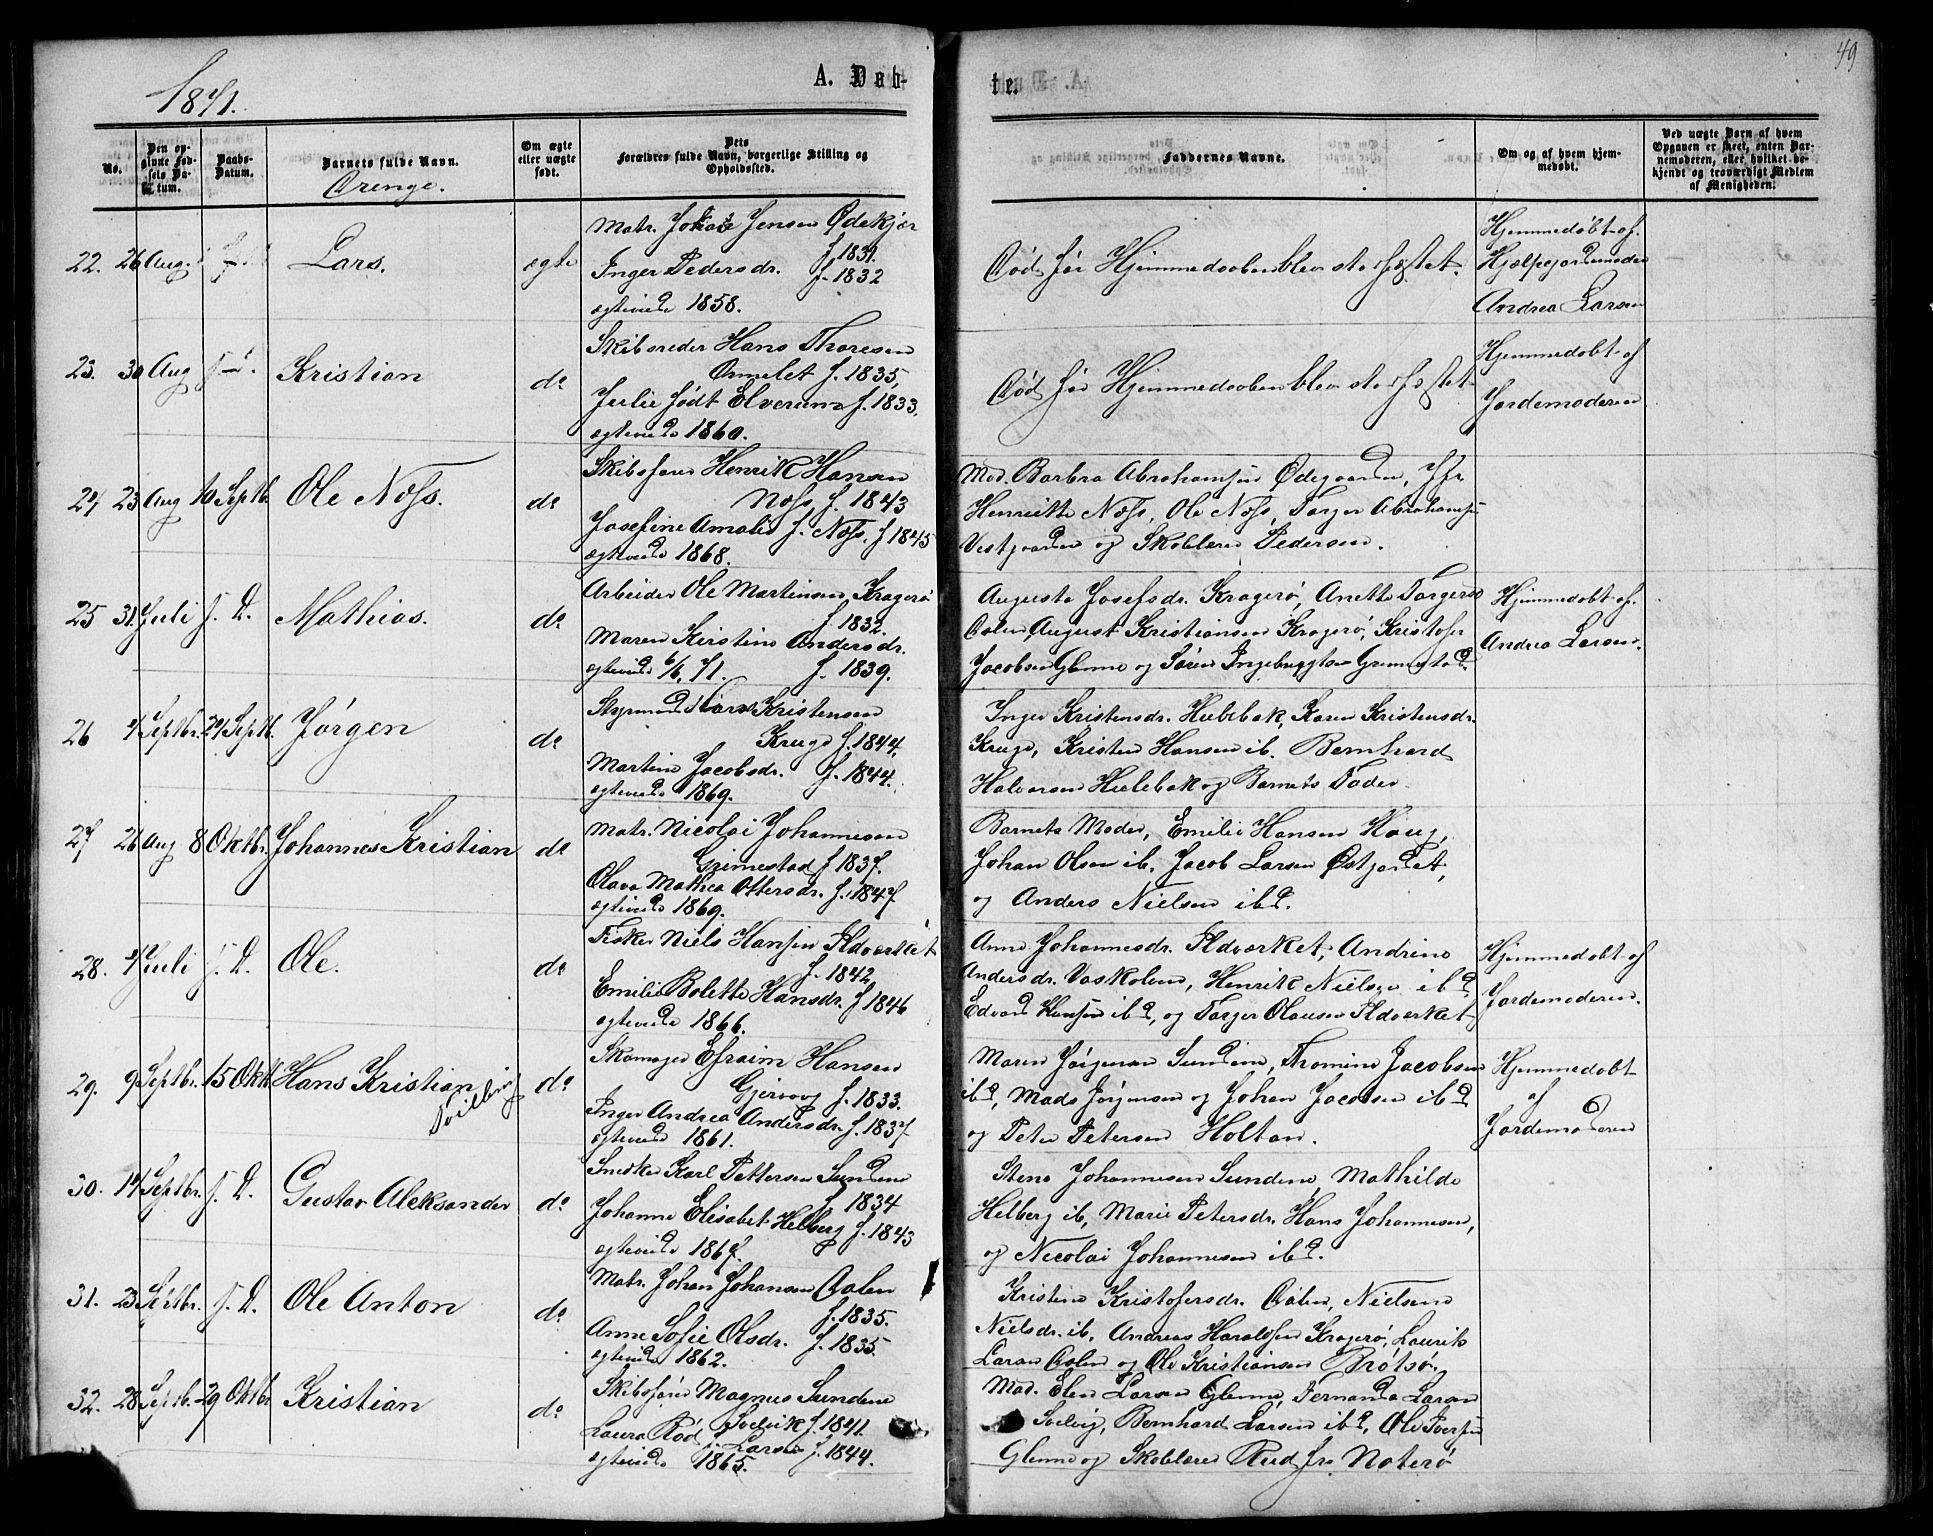 49
1871.
A. Døb-
te.
No.
Den op-
givne Fød-
sels Da-
tum.
Daabs-
Datum.
Barnets fulde Navn.
Drenge.
Om ægte
eller uægte
født.
Dets
Forældres fulde Navn, borgerlige Stilling og
Opholdssted.
Faddernes Navne.
Om og af hvem hjem-
medøbt.
Ved uægte Børn af hvem
Opgaven er skeet, enten Bar-
nemoderen, eller hvilket be-
kjendt og troværdigt Medlem
af Menigheden.
22. 26 Aug. Lars. ægte
Matr. Jensen Ødekjær
f. 1831.
Inger Pedersdr. f. 1832
ægteviede 1858.
Død før Hjemmedaaben blev stadfæstet.
Hjemmedøbt af
Hjælpejordemoder
Andrea Larsen
23. 30 Aug Kristian do
Skibsreder Hans Thoresen
Ormelet f. 1835,
Julie født Elverum f. 1833.
ægteviede 1860.
Død før Hjemmedaaben blev stadfæstet
Hjemmedøbt af
Jordemoderen
24 23 Aug 10 Septbr. Ole Næss. do
Skibsfører Henrik Hansen
Næss f. 1843
Josefine Amalie f. Næss. f 1845
ægteviede 1868.
Mad. Barbra Abrahamsen Ødegaarden, Jfr
Henriette Næss, Ole Næss, Torger Abrahamsen
Vestgaarden og Skolelærer Pedersen.
25 31. Juli s. D. Mathias. do
Arbeider Ole Martinsen Kragerø
f. 1832.
Maren Kirstine Andersdr.
ægteviede 6/6 71. f. 1839.
Augusta Josefsdr. Kragerø, Anette Torgersdr
Dalen, August Kristiansen Kragerø, Kristofer
Jacobsen Glenne og Søren Ingebregtsen Grimestad.
Hjemmedøbt af.
Andrea Larsen.
26 4 Septbr. 24 Septb. Jørgen do
Styrmand Kristensen
Kruge f. 1844,
Martine Jacobsdr. f. 1844.
ægteviede 1869.
Inger Kristensdr. Hulebak, Karen Kristensdr.
Kruge, Kristen Hansen ib. Bernhard
Halvorsen Hulebak og Barnets Fader.
27 26 Aug 8 Oktbr. Johannes Kristian do
Matr. Nicolai Johannesen
Grimestad f 1837.
Olava Mathea Ottersdr. f. 1847
ægteviede 1869.
Barnets Moder, Emilie Hansen Haug,
Johan Olsen ib. Jacob Larsen Østjordet,
og Anders Nielsen ibd.
28. 4 Juli s. D. Ole. do
Fisker Niels Hansen Ildverket
f. 1842,
Emilie Bolette Hansdr. f 1846
ægteviede 1866.
Anne Johannesdr. Ildverket, Andrine
Andersdr. Vaskolven, Henrik Nielsen ibd
Edvard Hansen ibd, og Torger Olausen Ildverket
Hjemmedøbt af
Jordemoderen.
29. 9 Septbr. 15 Oktb. Hans Kristian
Tvilling do
Skomager Efraim Hansen
f. 1833.
Inger Andrea Andersdr. f. 1837
ægteviede 1861.
Maren Jørgensen Sundene, Thomine Jacobsen
ibd, Mads Jørgensen og Johan Jacobsen ibd
og Peter Petersen Holtan.
Hjemmedøbt
af
Jordemoderen
30. 14 Septbr. s. D. Gustav Aleksander do
Snedker Karl Pettersen Sundene
f 1834
Johanne Elisabet Helberg f. 1843
ægteviede 1867.
Stena Johannesen Sundene, Mathilde
Helberg ib, Marie Petersdr. Hans Johannesen,
og Nicolai Johannesen ibd.
31. 23 Septbr. s. D. Ole Anton do
Matr. Johan Johansen Dalen
f. 1835.
Anne Sofie Olsdr. f. 1835.
ægteviede 1862.
Kristine Kristofersdr. Dalen, Nielsine
Nielsdr. ib, Andreas Haraldsen Kragerø, Laurits
Larsen Dalen og Ole Kristiansen Brøtsø,
32. 28 Septb. 29 Oktbr Kristian do
Skibsfører Magnus Sundene
Solvik f. 1841.
Laura Rød f. Larsen f. 1844.
ægteviede 1865.
Mad. Elen Larsen Glenne, Fernanda Larsen
Solvig, Bernhard Larsen ibd, Ole Iversen
Glenne og Skolelærer Rød fra Nøterø